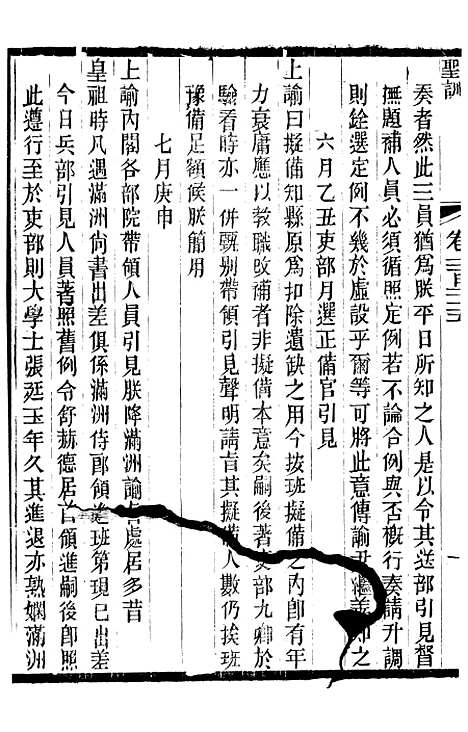 聖訓
卷二百三十三
奏者然此三員猶爲朕平日所知之人是以令其送部引見督
撫題補人員必須循照定例若不論合例與否槪行奏請升調
則銓選定例不幾於虛設乎爾等可將此意傳諭尹繼善知之
六月乙丑吏部月選正備官引見
上諭曰擬備知縣原爲扣除遺缺之用今按班擬備之內卽有年
力衰庸應以敎職改補者非擬備本意矣嗣後著吏部九卿於
驗看時亦一併甄別帶領引見聲明請旨其擬備人數仍挨班
豫備足額候朕簡用
七月庚申
上諭內閣各部院帶領人員引見朕降滿洲諭旨處居多昔
皇祖時凡遇滿洲尙書出差俱係滿洲侍郞領進班第現已出差
今日兵部引見人員著照舊例令舒赫德居首領進嗣後卽照
此遵行至於吏部則大學士張廷玉年久其進退亦熟嫻滿洲